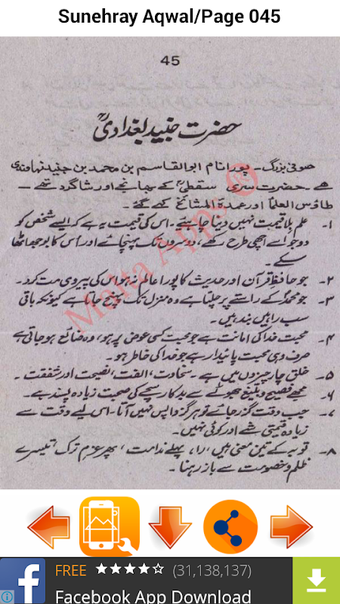 Sunehray Aqwal/Page 045
45
حضرت جنید بغدادیؒ
صوفی بزرگ - پورا نام ابوالقاسم بن محمد بن جنید نہاوندی
ہے حضرت سری سقطیؒ کے بھانجے اور شاگرد تھے -
طاؤس العلما اور عمدۃ المشائخ کہے گئے -
۱- علم بلا قیمت نہیں دینا چاہیئے - اس کی قیمت یہ ہے کہ ایسے شخص کو
دو جو اسے اچھی طرح رکھے، دوسروں تک پہنچائے اور اس کا بوجھ اٹھا
سکے -
۲- جو حافظ قرآن اور حدیث کا پورا عالم نہ ہو اس کی پیروی مت کرو -
۳- جو محمدؐ کے راستے پر چلتا ہے وہ منزل تک پہنچ جاتا ہے کیونکہ باقی
سب راہیں بند ہیں -
۴- محبت خدا کی امانت ہے جو محبت کسی عوض پر ہو، وہ ضائع ہو جاتی ہے
صرف وہی محبت پائیدار ہے جو خدا کی خاطر ہو -
۵- خلق چار چیزوں میں ہے - سخاوت، الفت، نصیحت اور شفقت -
۶- مجھے فصیح و بلیغ جھوٹے سے بدکار سچے کی صحبت زیادہ پسند ہے -
۷- جب وقت گزر جائے تو ہرگز واپس نہیں آتا - اس لیے وقت سے
زیادہ قیمتی شے اور کوئی نہیں -
۸- توبہ کے تین معنی ہیں، پہلے ندامت، پھر عزم ترک تیسرے
ظلم و خصومت سے باز رہنا -
Malta Apps
FREE (31,138,137)
Facebook App Download